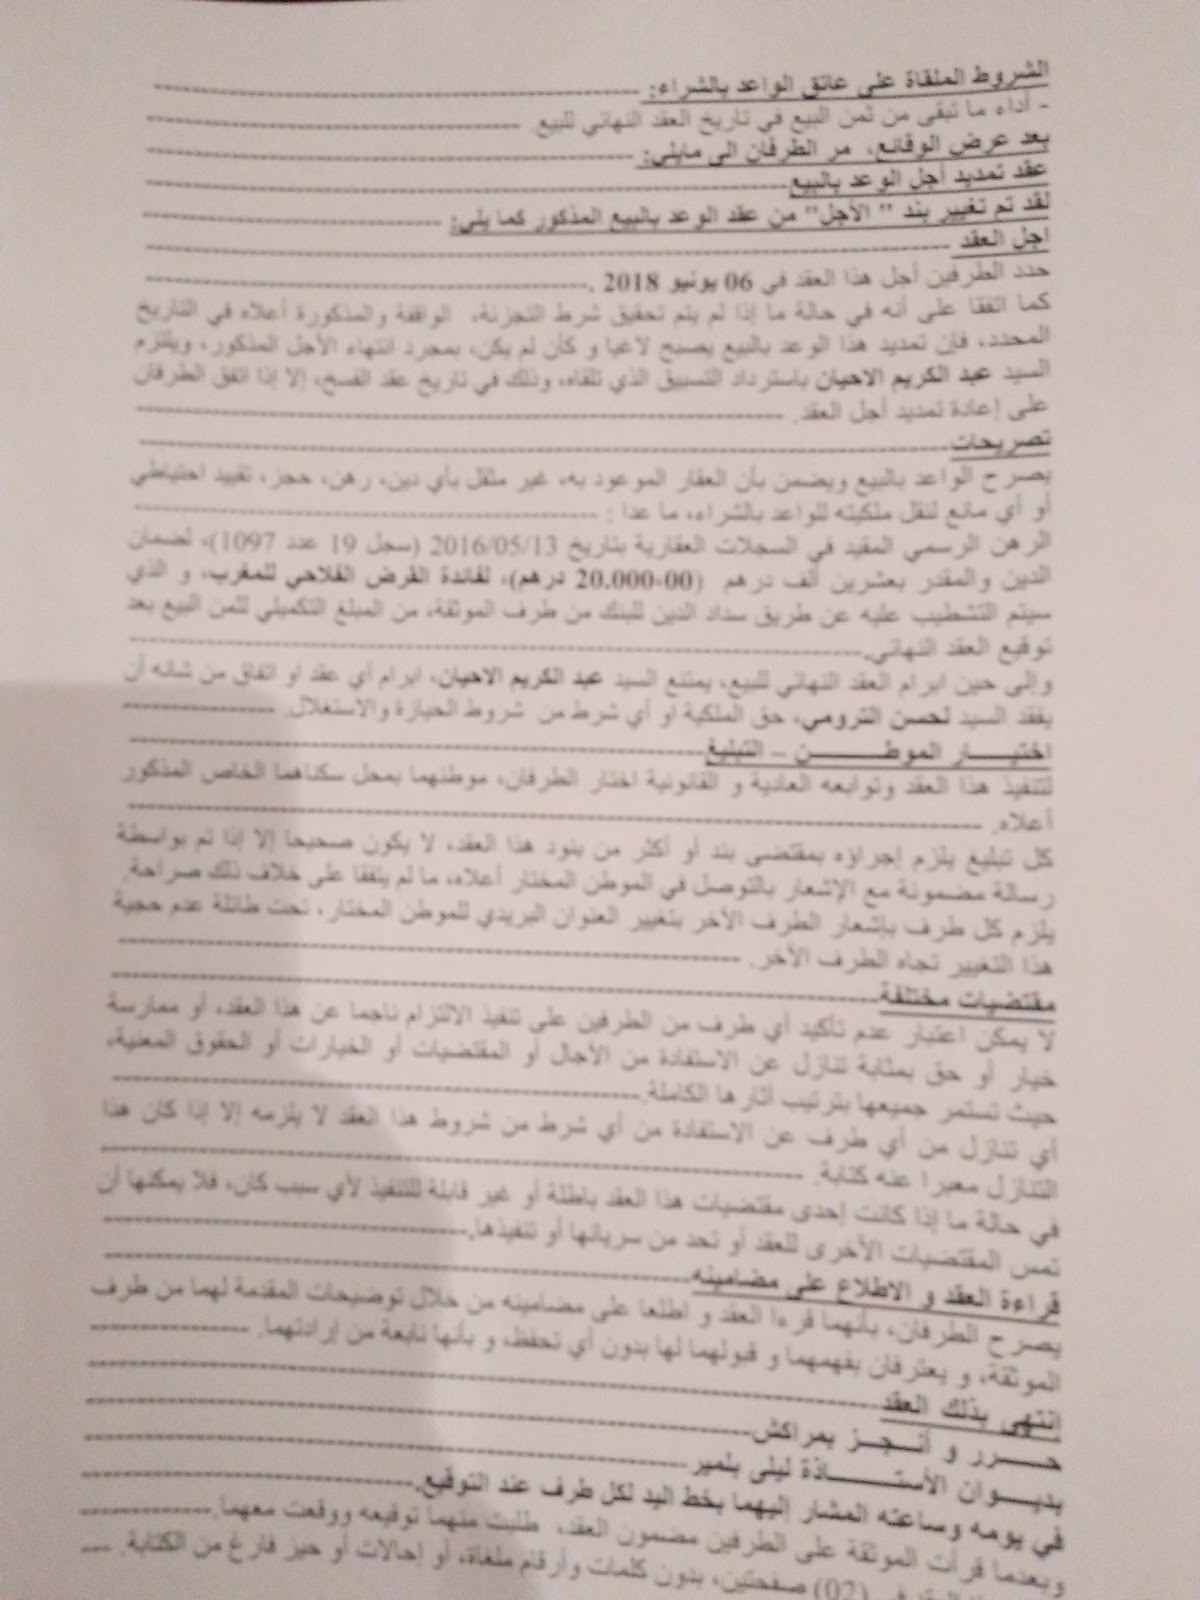 الشروط الملقاة على عاتق الواعد بالشراء:
- أداء ما تبقى من ثمن البيع في تاريخ العقد النهائي للبيع.
بعد عرض الوقائع، مر الطرفان الى مايلي:
عقد تمديد أجل الوعد بالبيع
لقد تم تغيير بند " الأجل" من عقد الوعد بالبيع المذكور كما يلي:
اجل العقد
حدد الطرفين أجل هذا العقد في 06 يونيو 2018 .
كما اتفقا على أنه في حالة ما إذا لم يتم تحقيق شرط التجزئة، الواقفة والمذكورة أعلاه في التاريخ
المحدد، فإن تمديد هذا الوعد بالبيع يصبح لاغيا و كأن لم يكن، بمجرد انتهاء الأجل المذكور، ويلتزم
السيد عبد الكريم الاحيان باسترداد التسبيق الذي تلقاه، وذلك في تاريخ عقد الفسخ، إلا إذا اتفق الطرفان
على إعادة تمديد أجل العقد.
تصريحات
يصرح الواعد بالبيع ويضمن بأن العقار الموعود به، غير مثقل بأي دين، رهن، حجز، تقييد احتياطي
أو أي مانع لنقل ملكيته للواعد بالشراء، ما عدا :
الرهن الرسمي المقيد في السجلات العقارية بتاريخ 2016/05/13 (سجل 19 عدد 1097)، لضمان
الدين والمقدر بعشرين ألف درهم (20.000-00 درهم)، لفائدة القرض الفلاحي للمغرب، و الذي
سيتم التشطيب عليه عن طريق سداد الدين للبنك من طرف الموثقة، من المبلغ التكميلي لثمن البيع بعد
توقيع العقد النهائي.
وإلى حين ابرام العقد النهائي للبيع، يمتنع السيد عبد الكريم الاحيان، ابرام أي عقد او اتفاق من شانه أن
يفقد السيد لحسن الترومي، حق الملكية او أي شرط من شروط الحيازة والاستغلال.
اختيـــار الموطـــــن – التبليغ
لتنفيذ هذا العقد وتوابعه العادية و القانونية اختار الطرفان، موطنهما بمحل سكناهما الخاص المذكور
أعلاه.
كل تبليغ يلزم إجراؤه بمقتضى بند أو أكثر من بنود هذا العقد، لا يكون صحيحا إلا إذا تم بواسطة
رسالة مضمونة مع الإشعار بالتوصل في الموطن المختار أعلاه، ما لم يتفقا على خلاف ذلك صراحة.
يلزم كل طرف بإشعار الطرف الأخر بتغيير العنوان البريدي للموطن المختار، تحت طائلة عدم حجية
هذا التغيير تجاه الطرف الأخر.
مقتضيات مختلفة
لا يمكن اعتبار عدم تأكيد أي طرف من الطرفين على تنفيذ الالتزام ناجما عن هذا العقد، أو ممارسة
خيار أو حق بمثابة تنازل عن الاستفادة من الآجال أو المقتضيات أو الخيارات أو الحقوق المعنية،
حيث تستمر جميعها بترتيب أثارها الكاملة.
أي تنازل من أي طرف عن الاستفادة من أي شرط من شروط هذا العقد لا يلزمه إلا إذا كان هذا
التنازل معبرا عنه كتابة.
في حالة ما إذا كانت إحدى مقتضيات هذا العقد باطلة أو غير قابلة للتنفيذ لأي سبب كان، فلا يمكنها أن
تمس المقتضيات الأخرى للعقد أو تحد من سريانها أو تنفيذها.
قراءة العقد و الاطلاع على مضامينه
يصرح الطرفان، بأنهما قرءا العقد و اطلعا على مضامينه من خلال توضيحات المقدمة لهما من طرف
الموثقة، و يعترفان بفهمهما و قبولهما لها بدون أي تحفظ، و بأنها نابعة من إرادتهما.
إنتهى بذلك العقد
حـــرر و أنـجـــز بمراكش
بديــوان الأستـــــاذة ليلى بلمير
في يومه وساعته المشار إليهما بخط اليد لكل طرف عند التوقيع.
وبعدما قرأت الموثقة على الطرفين مضمون العقد، طلبت منهما توقيعه ووقعت معهما.
العقد في (02) صفحتين، بدون كلمات وأرقام ملغاة، أو إحالات أو حيز فارغ من الكتابة.